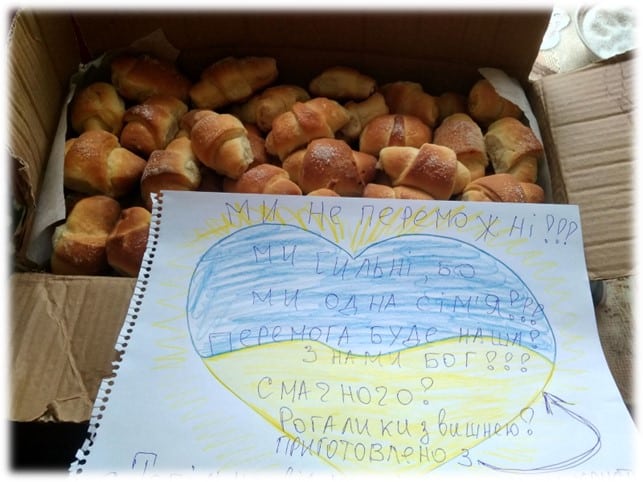 МИ НЕ ПЕРЕМОЖНІ!!!
МИ СИЛЬНІ, БО
МИ ОДНА СІМ'Я!!!
ПЕРЕМОГА БУДЕ НАША!
З НАМИ БОГ!!!
СМАЧНОГО!
Рогалики з вишнею!
ПРИГОТОВЛЕНО З